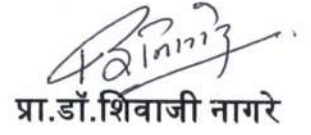 प्रा.डॉ.शिवाजी नागरे